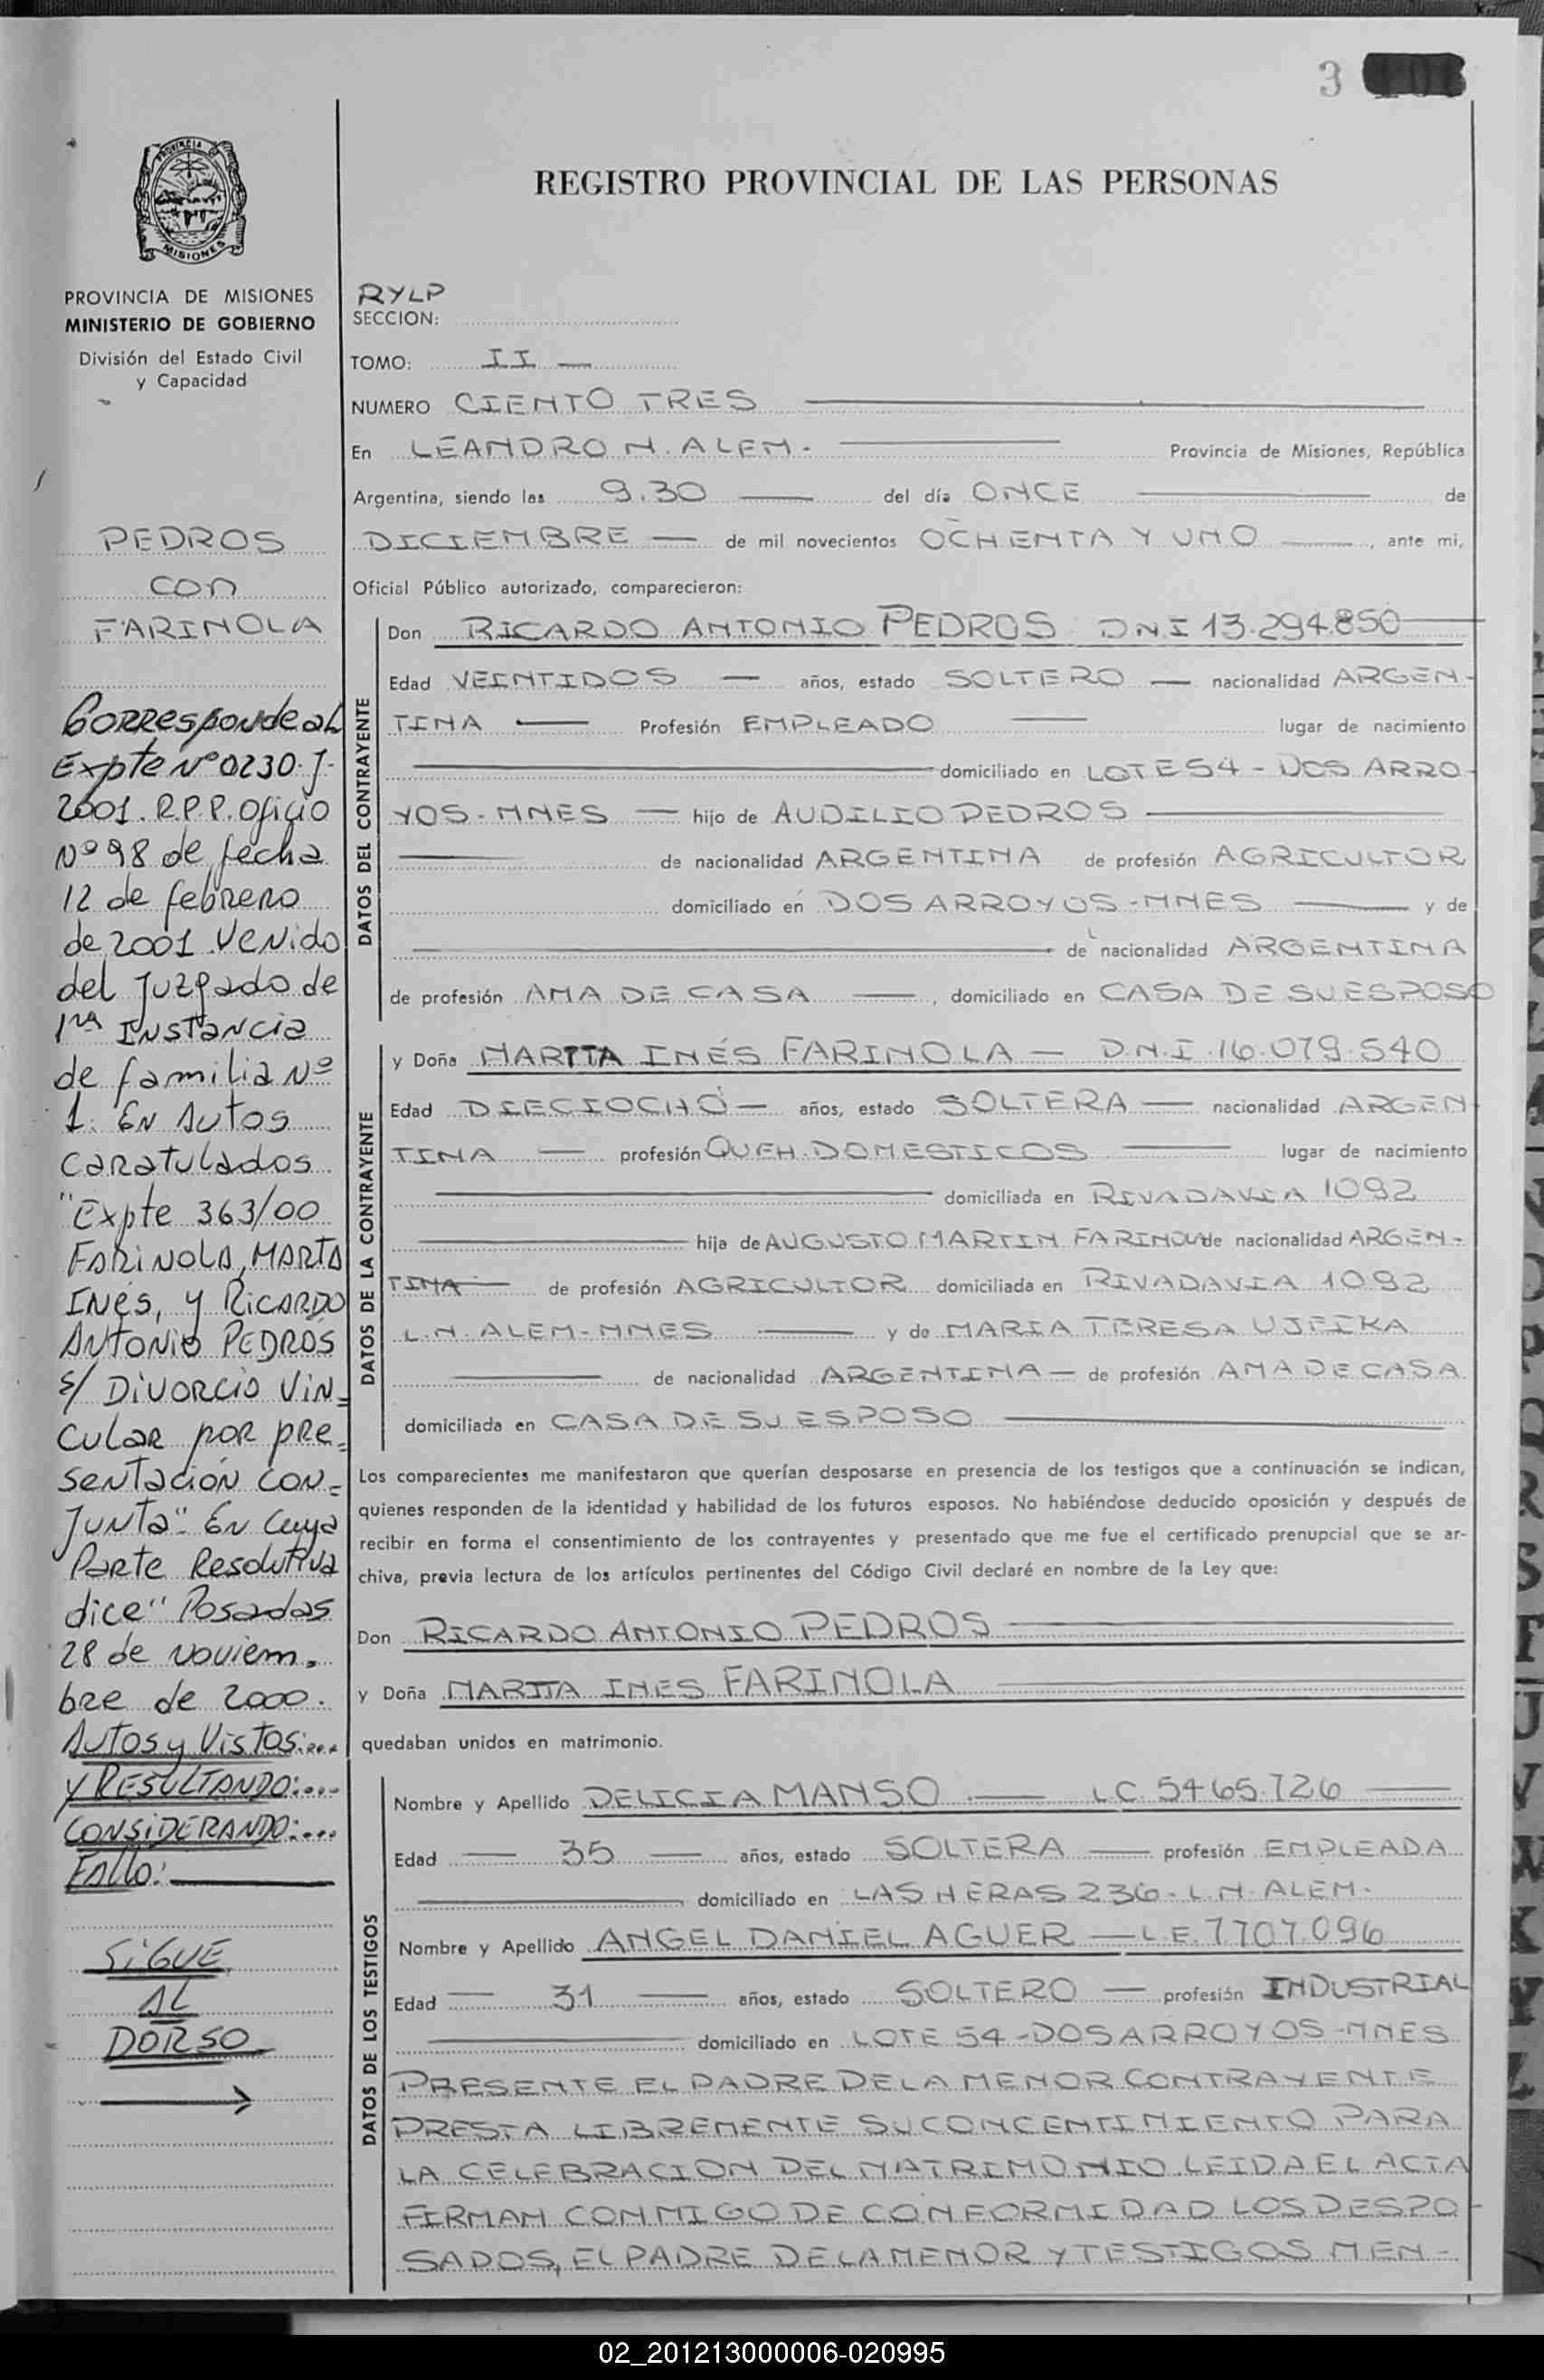 3
REGISTRO PROVINCIAL DE LAS PERSONAS
PROVINCIA
MISIONES
PROVINCIA DE MISIONES
MINISTERIO DE GOBIERNO
División del Estado Civil
y Capacidad
PEDROS
con
FARINOLA
Corresponde al
Expte Nº 0230-J-
2001. R.P.P. Oficio
Nº 98 de fecha
12 de febrero
de 2001 venido
del Juzgado de
1ra INSTANCIA
de familia Nº
1. En Autos
caratulados
"Expte 363/00
FARINOLA, MARTA
INÉS, y RICARDO
ANTONIO PEDROS
s/ DIVORCIO VIN=
CULAR por pre=
sentación con=
junta" En Cuya
Parte Resolutiva
dice" Posadas
28 de Noviem.
bre de 2000.
Autos y Vistos:...
Y RESULTANDO:...
CONSIDERANDO:...
Fallo:
SIGUE
AL
DORSO
RYLP
SECCION:
TOMO: II
NUMERO CIENTO TRES
En LEANDRO N. ALEM. Provincia de Misiones, República
Argentina, siendo las 9.30 del día ONCE de
DICIEMBRE de mil novecientos OCHENTA Y UNO, ante mi,
Oficial Público autorizado, comparecieron:
DATOS DEL CONTRAYENTE
Don RICARDO ANTONIO PEDROS DNI 13.294.850
Edad VEINTIDOS años, estado SOLTERO nacionalidad ARGEN-
TINA Profesión EMPLEADO lugar de nacimiento
domiciliado en LOTE 54 - DOS ARRO-
YOS-MNES hijo de AUDILIO PEDROS
de nacionalidad ARGENTINA de profesión AGRICULTOR
domiciliado en DOS ARROYOS-MNES y de
de nacionalidad ARGENTINA
de profesión AMA DE CASA, domiciliado en CASA DE SU ESPOSO
DATOS DE LA CONTRAYENTE
y Doña MARTTA INÉS FARINOLA - D.N.I. 16.079.540
Edad DIECIOCHO años, estado SOLTERA nacionalidad ARGEN
TINA profesión QUEH. DOMESTICOS lugar de nacimiento
domiciliada en RIVADAVIA 1092
hija de AUGUSTO MARTIN FARINOLA de nacionalidad ARGEN-
TINA de profesión AGRICULTOR domiciliada en RIVADAVIA 1092
L.N. ALEM-MNES y de MARIA TERESA UJEIKA
de nacionalidad ARGENTINA de profesión AMA DE CASA
domiciliada en CASA DE SU ESPOSO
Los comparecientes me manifestaron que querían desposarse en presencia de los testigos que a continuación se indican,
quienes responden de la identidad y habilidad de los futuros esposos. No habiéndose deducido oposición y después de
recibir en forma el consentimiento de los contrayentes y presentado que me fue el certificado prenupcial que se ar-
chiva, previa lectura de los artículos pertinentes del Código Civil declaré en nombre de la Ley que:
Don RICARDO ANTONIO PEDROS
y Doña MARTTA INES FARINOLA
quedaban unidos en matrimonio.
DATOS DE LOS TESTIGOS
Nombre y Apellido DELICIA MANSO LC 5465.726
Edad 35 años, estado SOLTERA profesión EMPLEADA
domiciliado en LAS HERAS 236-L.N. ALEM.
Nombre y Apellido ANGEL DANIEL AGUER L.E. 7707.096
Edad 31 años, estado SOLTERO profesión INDUSTRIAL
domiciliado en LOTE 54-DOS ARROYOS-MNES
PRESENTE EL PADRE DE LA MENOR CONTRAYENTE
PRESTA LIBREMENTE SU CONCENTIMIENTO PARA
LA CELEBRACION DEL MATRIMONIO. LEIDA EL ACTA
FIRMAN CONMIGO DE CONFORMIDAD LOS DESPO-
SADOS, EL PADRE DE LA MENOR Y TESTIGOS MEN-
02_201213000006-020995